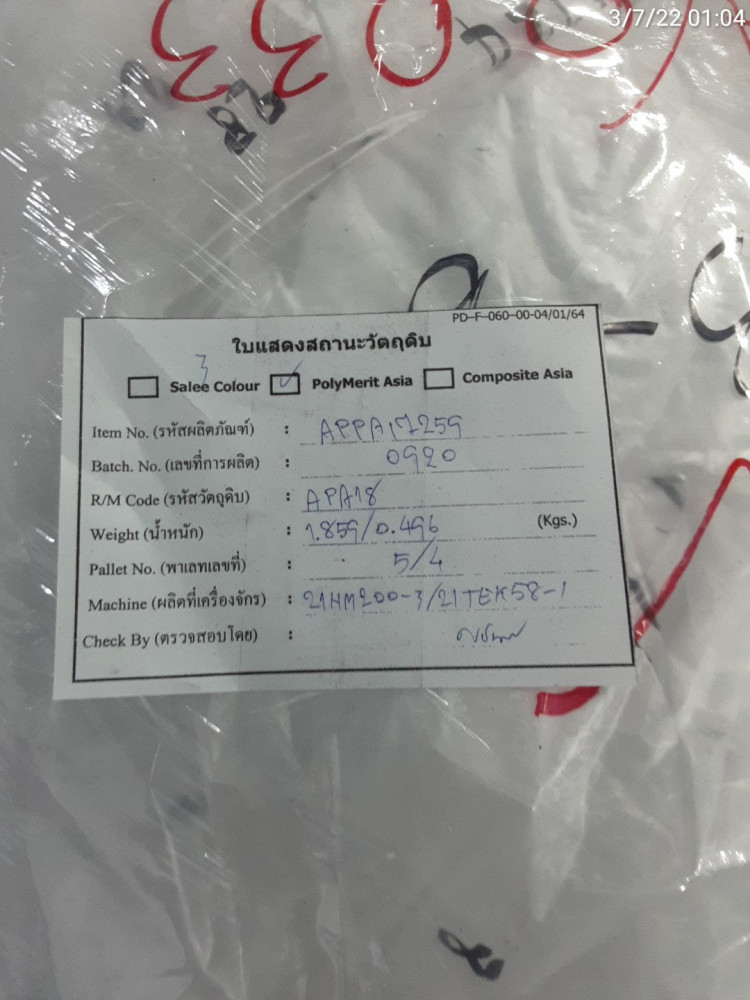 3/7/22 01:04
PD-F-060-00-04/01/64
ใบแสดงสถานะวัตถุดิบ
3
Salee Colour ✓ PolyMerit Asia Composite Asia
Item No. (รหัสผลิตภัณฑ์) : APPA17259
Batch. No. (เลขที่การผลิต) : 0920
R/M Code (รหัสวัตถุดิบ) : APA18
Weight (น้ำหนัก) : 1.859/0.496 (Kgs.)
Pallet No. (พาเลทเลขที่) : 5/4
Machine (ผลิตที่เครื่องจักร) : 21HM200-3/21TEK58-1
Check By (ตรวจสอบโดย) :